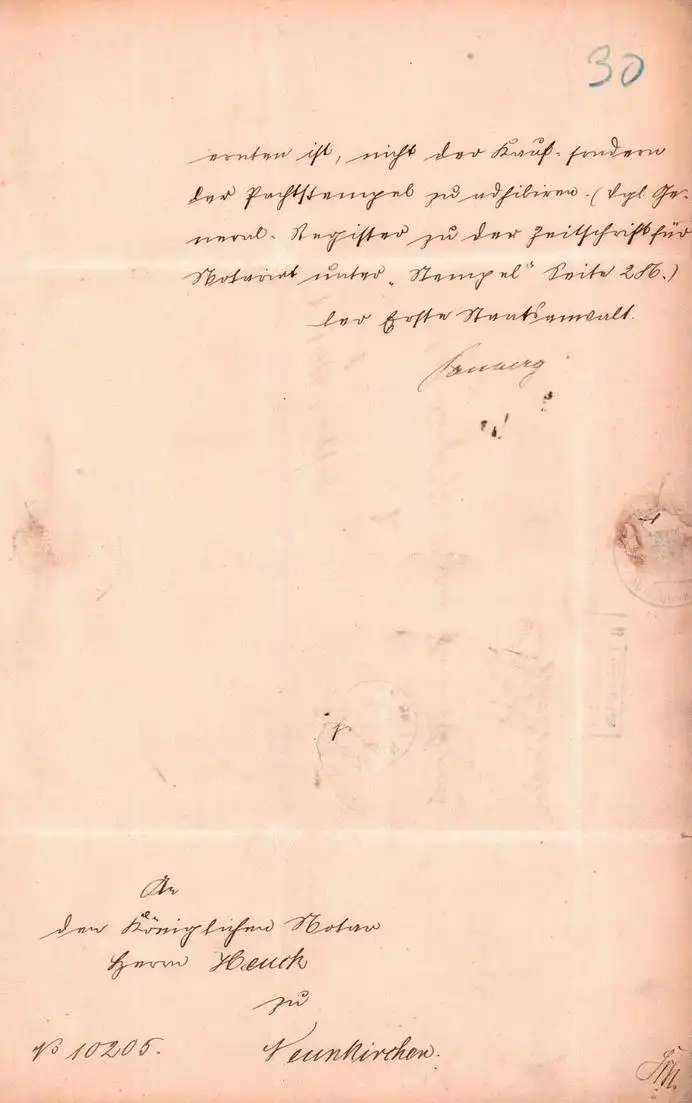 30
ernten ist, nicht der Kauf- sondern
der Pachtstempel zu adhibiren. (Vgl. Ge-
neral-Register zu der Zeitschrift für
Notariat unter „Stempel“ Seite
der Erste Staatsanwalt.
An
den Königlichen Notar
Herrn Heuck
zu
Neunkirchen.
№ 10205.